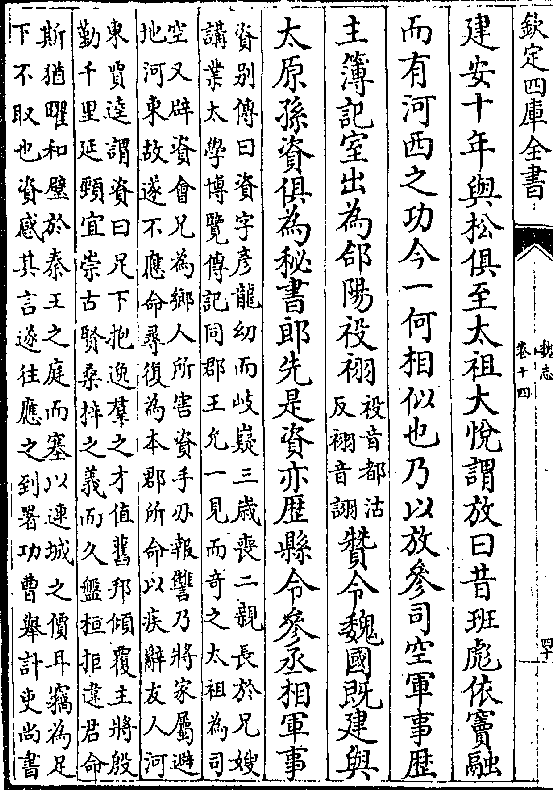 欽定四庫全書
魏志
卷十四
四十
建安十年與松俱至太祖大悅謂放曰昔班彪依竇融
而有河西之功今一何相似也乃以放參司空軍事歴
主簿記室出為郃陽祋祤祋音都沽反祤音詡贊令魏國既建與
太原孫資俱為秘書郎先是資亦歴縣令參丞相軍事
資别傳曰資字彦龍幼而岐嶷三歲喪二親長於兄嫂
講業太學博覽傳記同郡王允一見而奇之太祖為司
空又辟資會兄為鄉人所害資手刃報讐乃將家屬避
地河東故遂不應命尋復為本郡所命以疾辭友人河
東賈逵謂資曰足下抱逸羣之才值舊邦傾覆主將殷
勤千里延頸宜崇古賢桑梓之義而久盤桓拒違君命
斯猶曜和璧於秦王之庭而塞以連城之價耳竊為足
下不取也資感其言遂往應之到署功曹舉計吏尚書